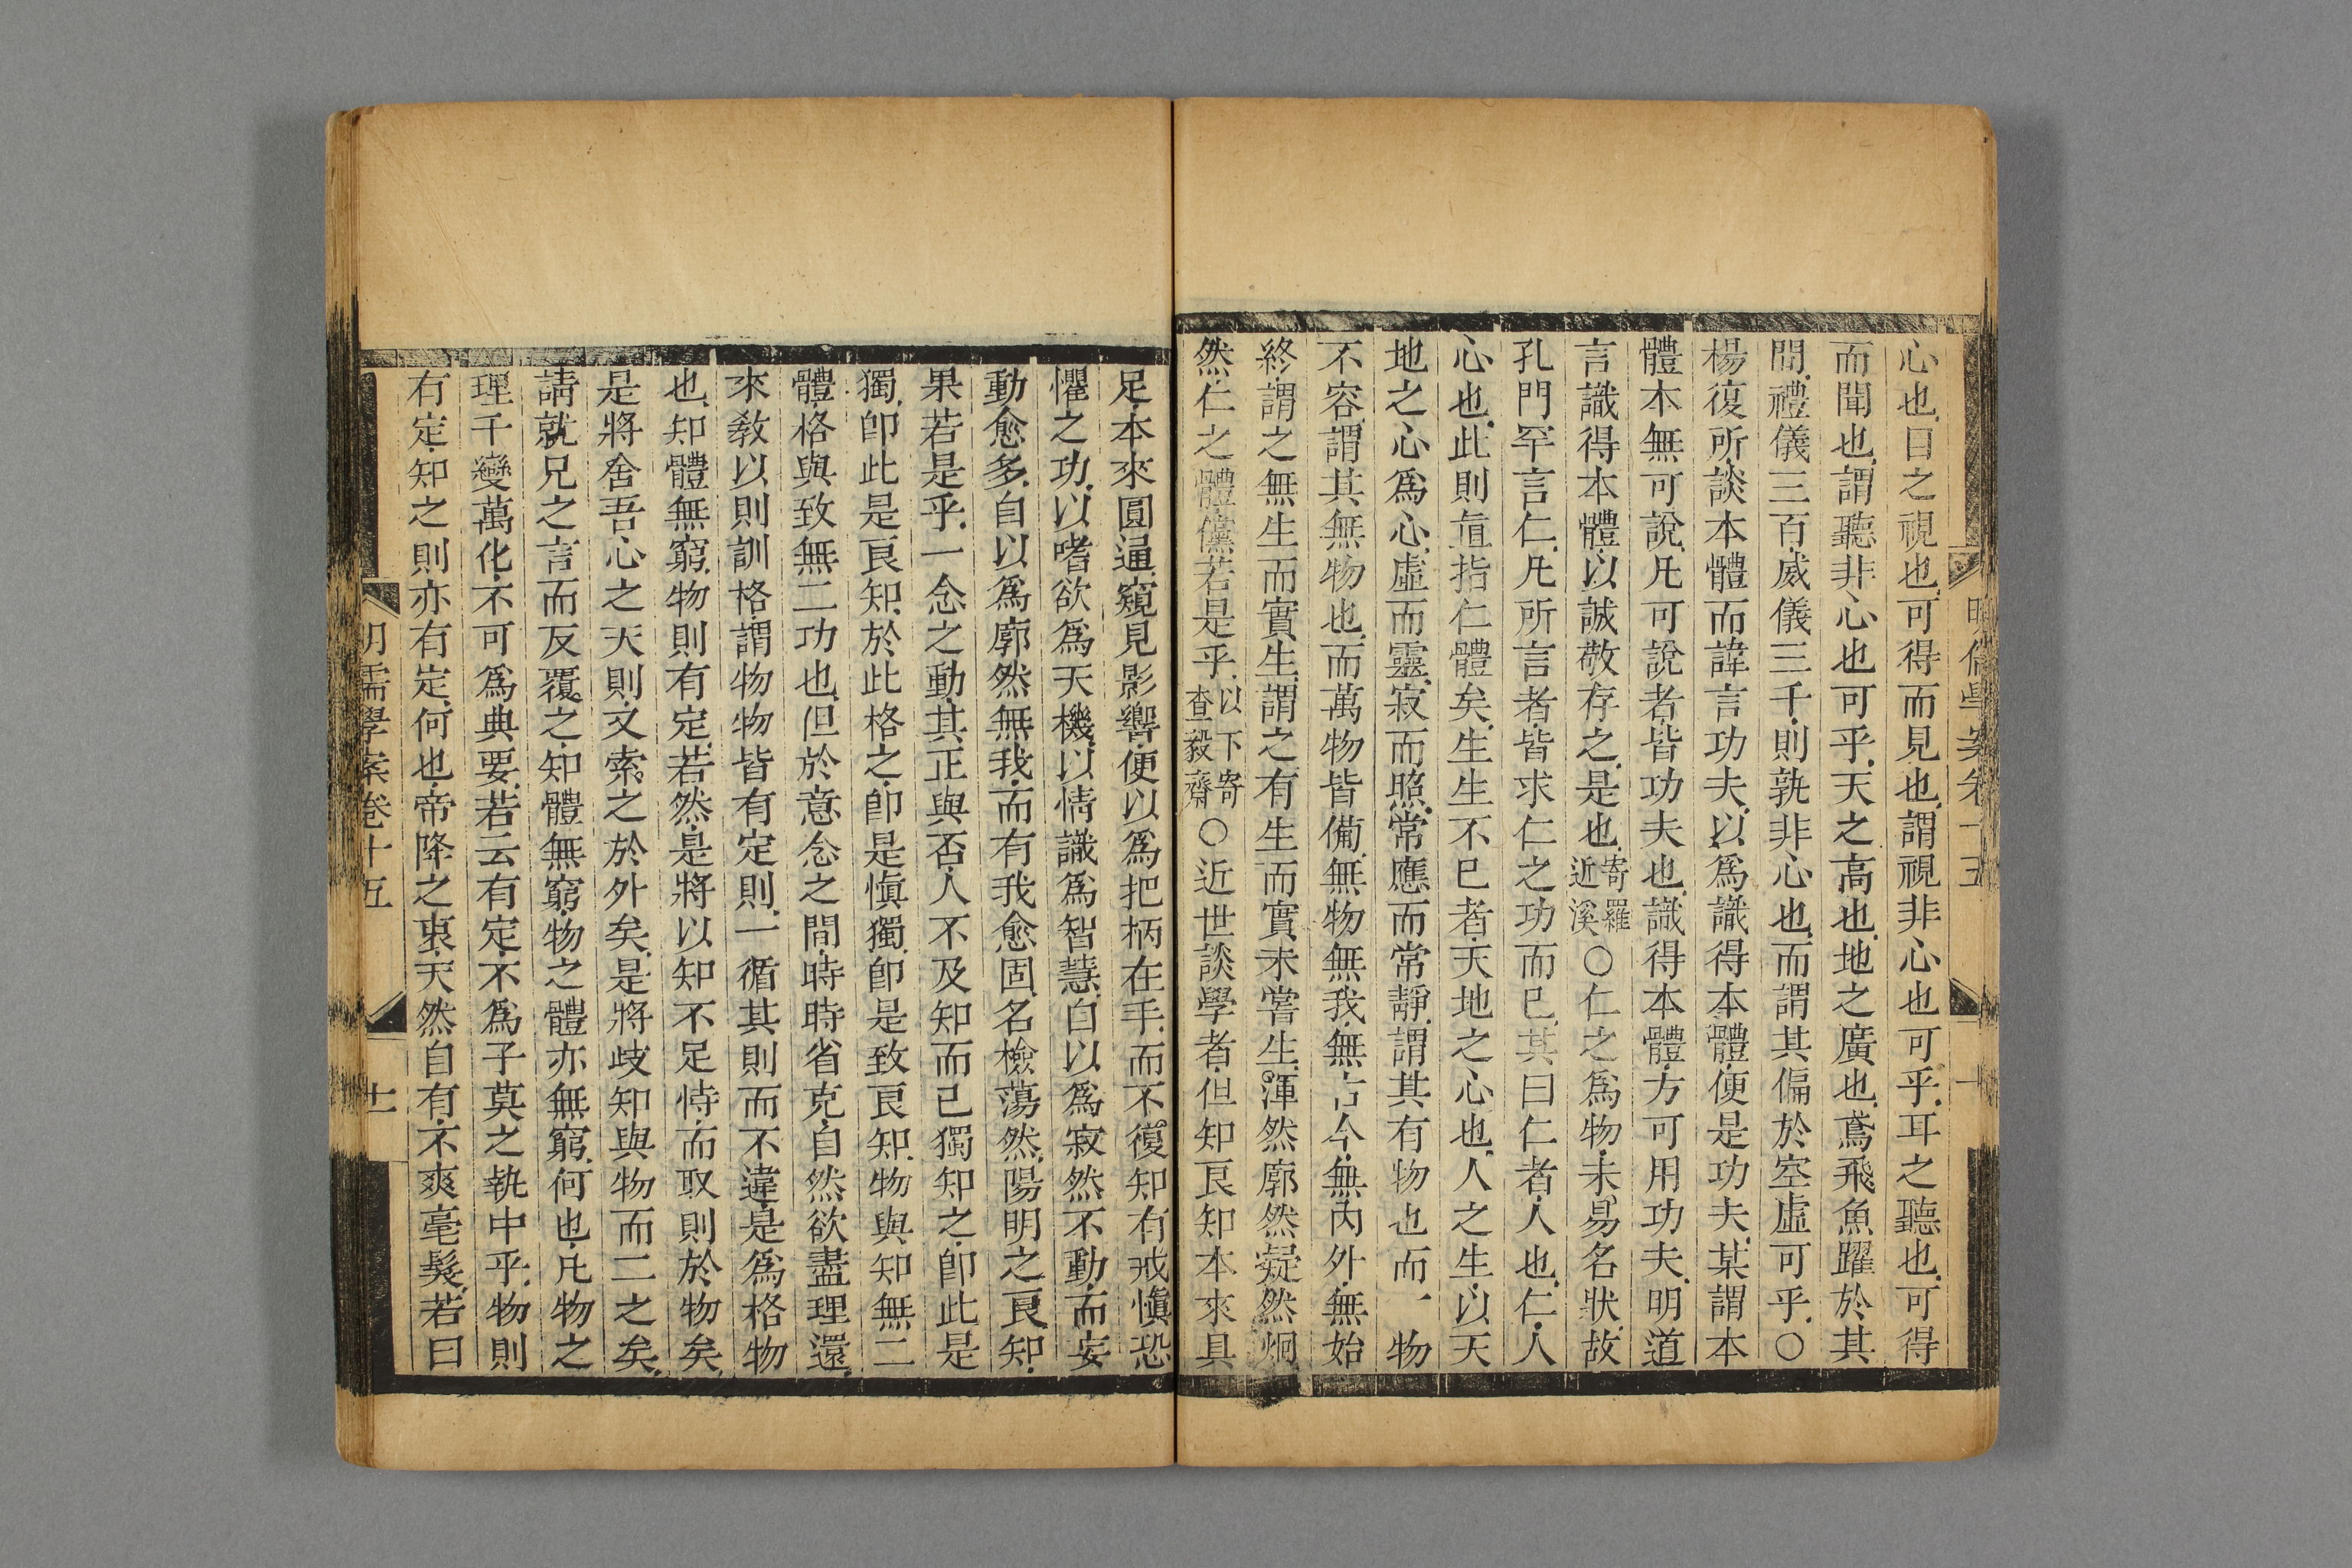 心也目之視也可得而見也謂視非心也可乎耳之聽也可得
而聞也謂聽非心也可乎天之高也地之廣也鳶飛魚躍於其
間禮儀三百威儀三千則孰非心也而謂其偏於空虛可乎○
楊復所談本體而諱言功夫以爲識得本體便是功夫某謂本
體本無可說凡可說者皆功夫也識得本體方可用功夫明道
言識得本體以誠敬存之是也寄羅近溪○仁之爲物未易名狀故
孔門罕言仁凡所言者皆求仁之功而已其曰仁者人也仁人
心也此則直指仁體矣生生不已者天地之心也人之生以天
地之心爲心虛而靈寂而照常應而常靜謂其有物也而一物
不容謂其無物也而萬物皆備無物無我無古今無內外無始
終謂之無生而實生謂之有生而實未嘗生渾然廓然凝然炯
然仁之體儻若是乎以下寄查毅齋○近世談學者但知良知本來具
足本來圓通窺見影響便以爲把柄在手而不復知有戒愼恐
懼之功以嗜欲爲天機以情識爲智慧自以爲寂然不動而妄
動愈多自以爲廓然無我而有我愈固名檢蕩然陽明之良知
果若是乎一念之動其正與否人不及知而已獨知之卽此是
獨卽此是良知於此格之卽是愼獨卽是致良知物與知無二
體格與致無二功也但於意念之間時時省克自然欲盡理還
來敎以則訓格謂物物皆有定則一循其則而不違是爲格物
也知體無窮物則有定若然是將以知不足恃而取則於物矣
是將舍吾心之天則又索之於外矣是將歧知與物而二之矣
請就兄之言而反覆之知體無窮物之體亦無窮何也凡物之
理千變萬化不可爲典要若云有定不爲子莫之執中乎物則
有定知之則亦有定何也帝降之衷天然自有不爽毫髮若曰
明儒學案卷十五
十一